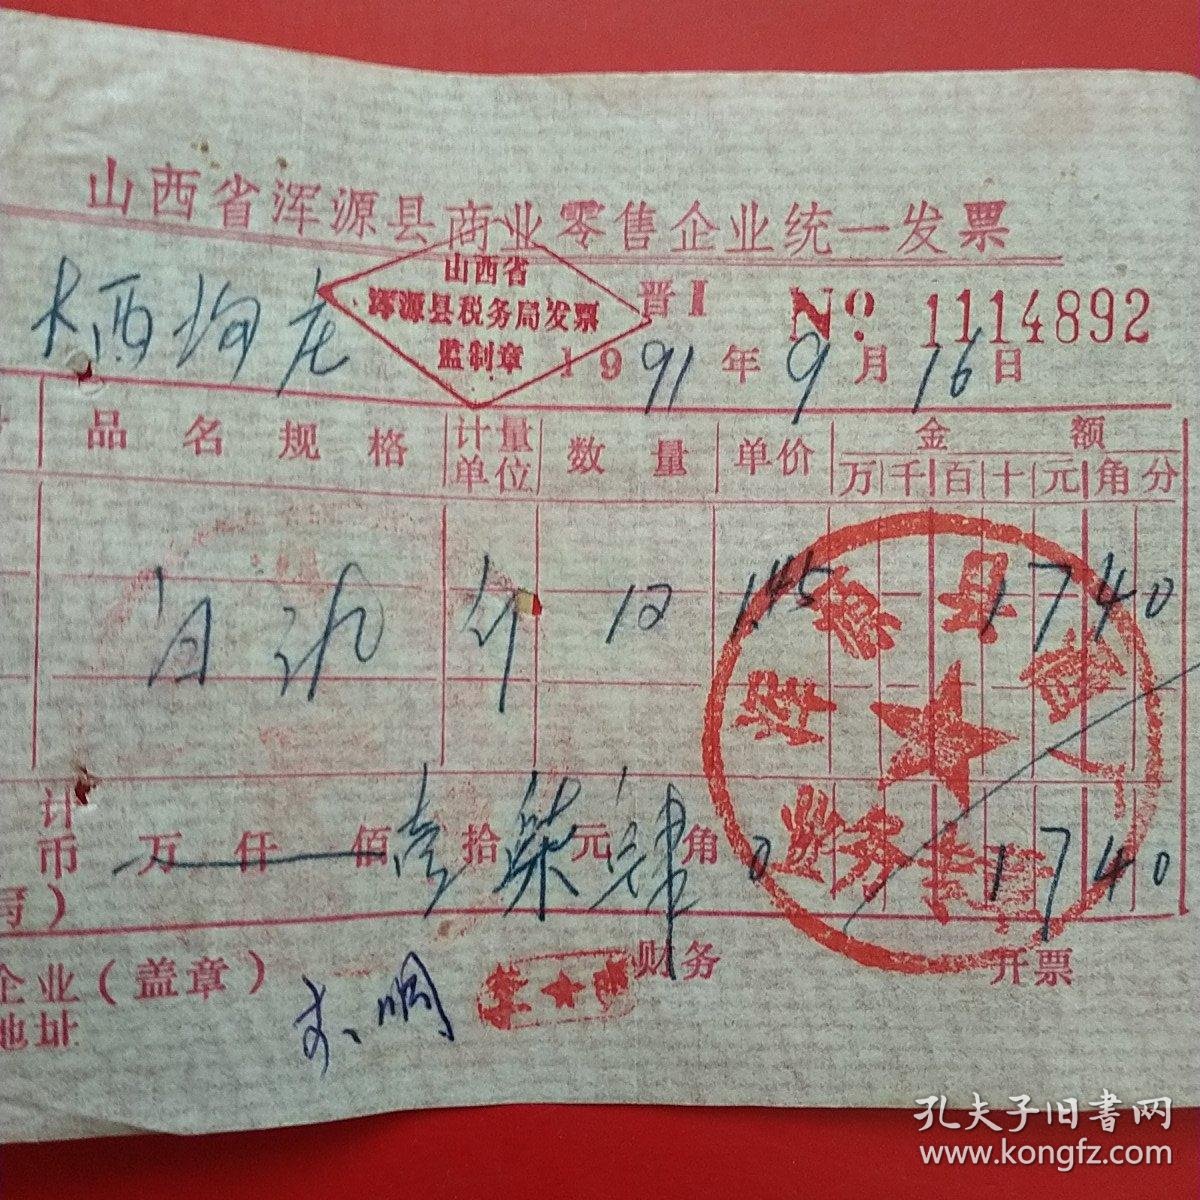 山西省浑源县商业零售企业统一发票
山西省
浑源县税务局发票
监制章
晋1 № 1114892
1991年9月16日
品名规格 计量单位 数量 单价 金额
万 千 百 十 元 角 分
12 1.45 1740
计
币 万 仟 佰 壹 拾 柒 元 肆 角 0 1740
写)
企业(盖章) 财务 开票
地址
浑源县
业务专
孔夫子旧書网
www.kongfz.com